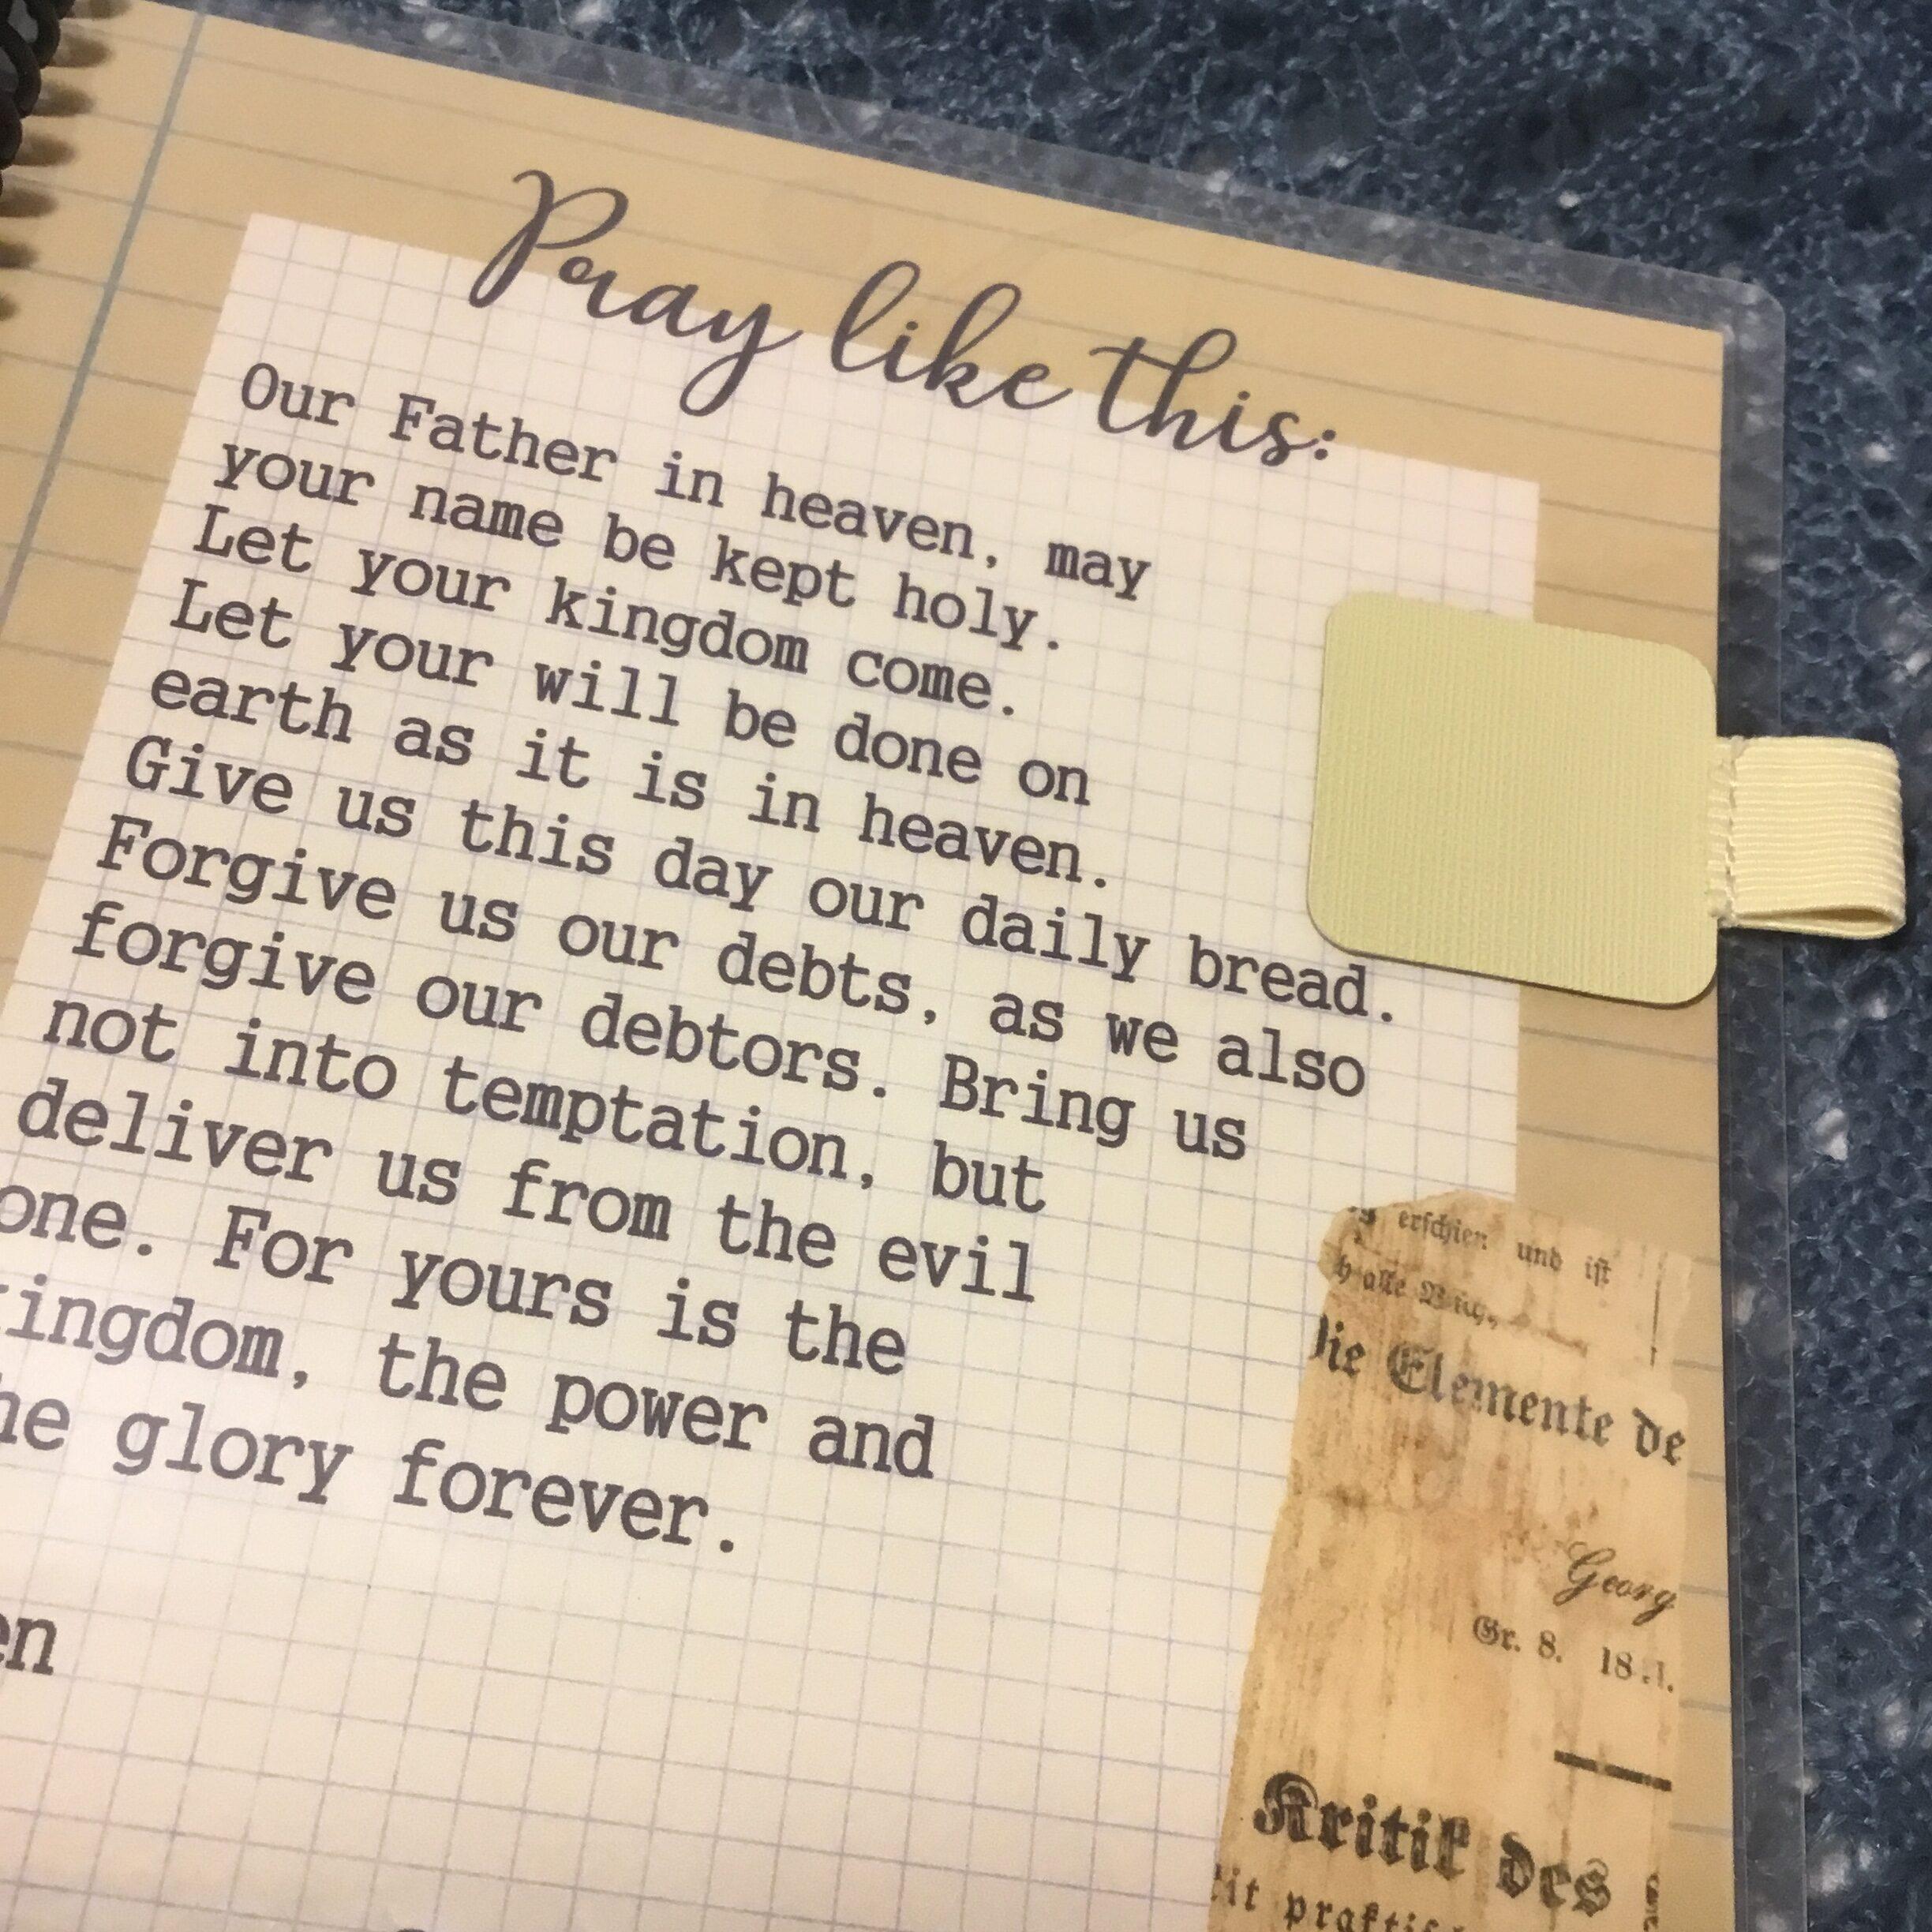 Pray like this:
Our Father in heaven, may
your name be kept holy.
Let your kingdom come.
Let your will be done on
earth as it is in heaven.
Give us this day our daily bread.
Forgive us our debts, as we also
forgive our debtors. Bring us
not into temptation, but
deliver us from the evil
one. For yours is the
ingdom, the power and
he glory forever.
en
erſchien und iſt
alle
die Elemente de
Georg
Gr. 8.
Kritik des